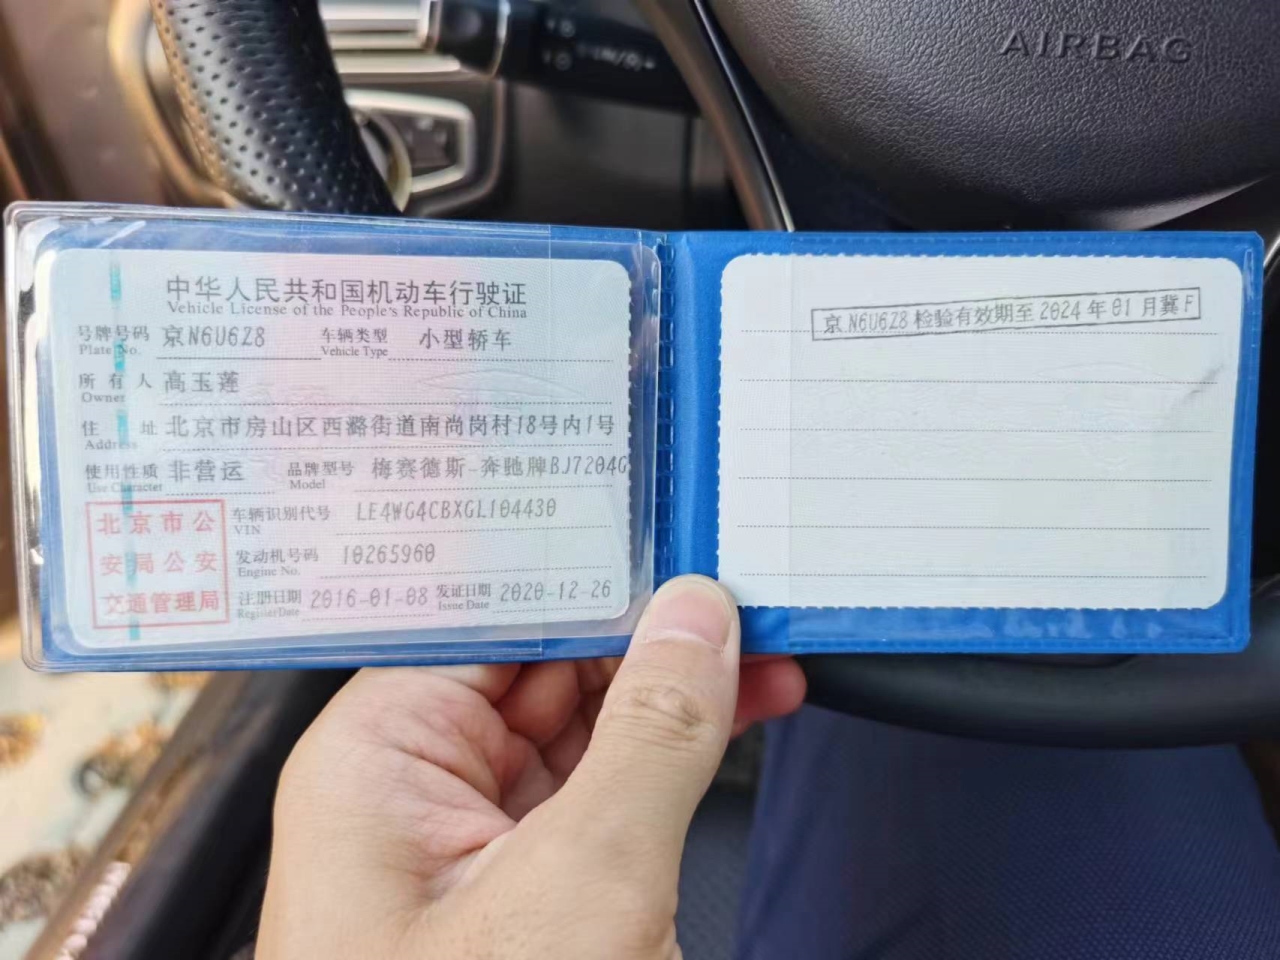 AIRBAG
中华人民共和国机动车行驶证
Vehicle License of the People's Republic of China
号牌号码 京N6U6Z8 车辆类型 小型轿车
Plate No. Vehicle Type
所有人 高玉莲
Owner
住址 北京市房山区西潞街道南尚岗村18号内1号
Address
使用性质 非营运 品牌型号 梅赛德斯-奔驰牌BJ7204G
Use Character Model
北京市公
安局公安
交通管理局
车辆识别代号 LE4WG4CBXGL104430
VIN
发动机号码 10265960
Engine No.
注册日期 2016-01-08 发证日期 2020-12-26
Register Date Issue Date
京N6U6Z8检验有效期至2024年01月冀F